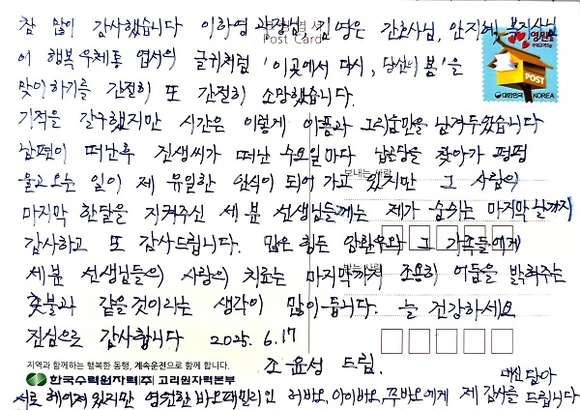 참 많이 감사했습니다 이하영 과장님, 김영은 간호사님, 안지혜 복지사님
Post Card
이 행복 우체통 엽서의 글귀처럼 '이곳에서 다시, 당신의 봄'을
맞이하기를 간절히 또 간절히 소망했습니다.
기적을 갈구했지만 시간은 이렇게 아픔과 그리움만을 남겨두었습니다
남편이 떠난후 진생씨가 떠난 수요일마다 납골당을 찾아가 펑펑
보내는 사람
울고오는 일이 제 유일한 안식이 되어 가고 있지만 그 사람의
마지막 한달을 지켜주신 세 분 선생님들께는 제가 숨쉬는 마지막 날까지
감사하고 또 감사드립니다. 많은 힘든 암환우와 그 가족들에게
세분 선생님들의 사랑의 치료는 마지막까지 조용히 어둠을 밝혀주는
횃불과 같을것이라는 생각이 많이 듭니다. 늘 건강하세요
진심으로 감사합니다 2025. 6.17
조윤성 드림.
POST
대한민국 KOREA
지역과 함께하는 행복한 동행, 계속운전으로 함께 합니다.
한국수력원자력(주) 고리원자력본부
대신 담아
서로 헤어져 있지만 영원한 바오패밀리인 러바오, 아이바오, 푸바오에게 제 감사를 드립니다